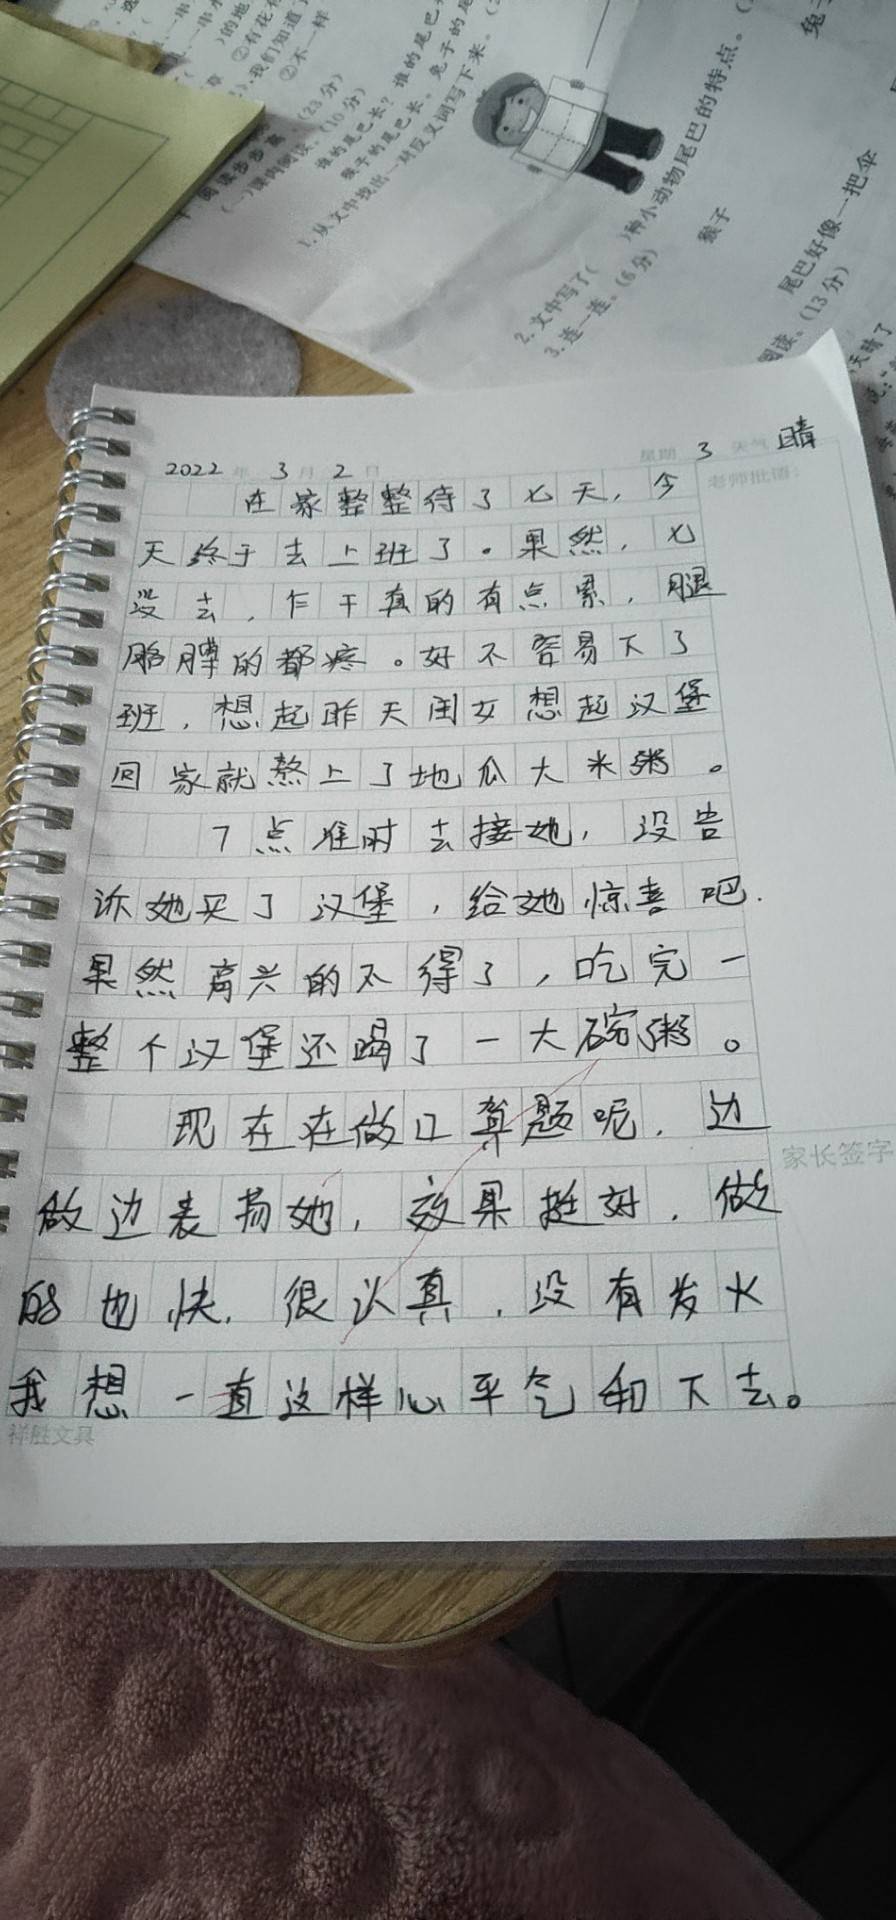 阅读步步高 (23分)
(一)课内阅读。(10分)
谁的尾巴长?谁的尾巴
猴子的尾巴长。兔子的尾
1.从文中找出一对反义词写下来。(
2.文中写了( )种小动物尾巴的特点。(
3.连一连。(6分)
猴子
兔子
尾巴好像一把伞
阅读。(13分)
天晴了
②有花有
,我们知道了
②不一样
2022年 3月 2日 星期 3 天气 晴
老师批语:
在家整整待了七天,今
天终于去上班了。果然,七
没去,乍干真的有点累,腿
胳膊的都疼。好不容易下了
班,想起昨天闺女想起汉堡
回家就熬上了地瓜大米粥。
7点准时去接她,没告
诉她买了汉堡,给她惊喜吧.
果然高兴的不得了,吃完一
整个汉堡还喝了一大碗粥。
现在在做口算题呢,边
做边表扬她,效果挺好,做
的也快,很认真,没有发火
我想一直这样心平气和下去。
家长签字
祥胜文具